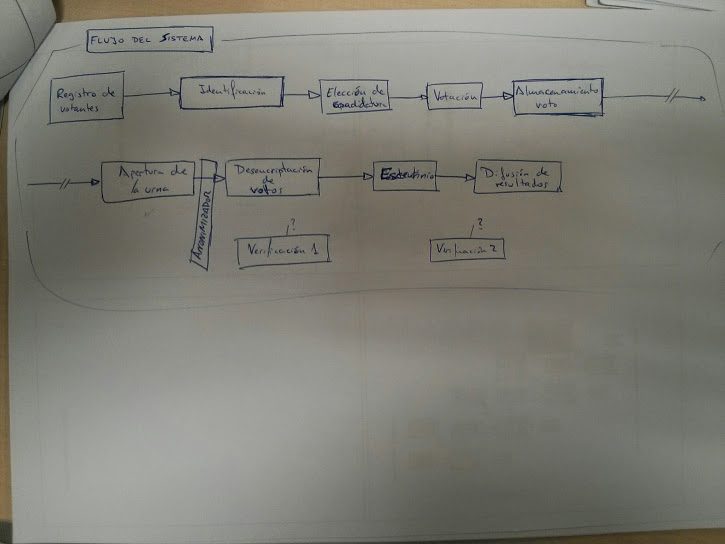 FLUJO DEL SISTEMA
Registro de
votantes
Identificación
Elección de
Votación
Almacenamiento
voto
Apertura de
la urna
ANONIMIZADOR
Desencriptación
de
votos
Escrutinio
Difusión de
resultados
?
Verificación 1
?
Verificación 2